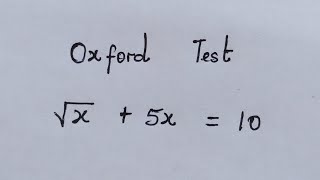 Oxford Test
√x + 5x = 10